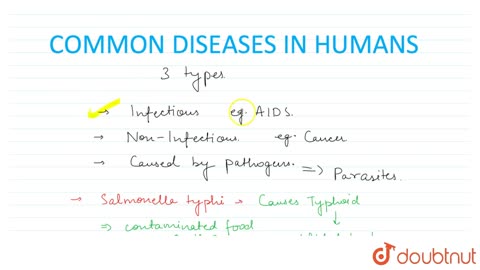 COMMON DISEASES IN HUMANS
3 types
→ Infectious eg. AIDS.
→ Non-Infectious. eg. Cancer
→ Caused by pathogens. => Parasites.
→ Salmonella typhi → Causes Typhoid
↓
=> contaminated food
doubtnut